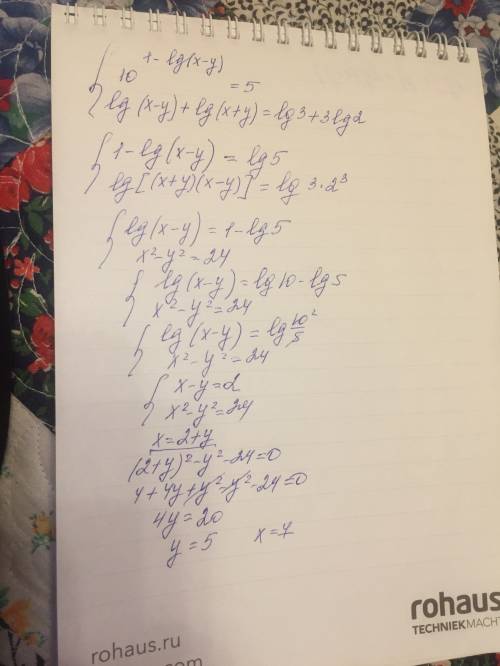 { 10^(1-lg(x-y)) = 5
lg(x-y)+lg(x+y)=lg3+3lg2
{ 1-lg(x-y) = lg5
lg[(x+y)(x-y)] = lg 3·2³
{ lg(x-y) = 1-lg5
x²-y²=24
{ lg(x-y)=lg10-lg5
x²-y²=24
{ lg(x-y)=lg 10/5 ²
x²-y²=24
{ x-y=2
x²-y²=24
x=2+y
(2+y)²-y²-24=0
4+4y+y²-y²-24=0
4y=20
y=5 x=7
rohaus
TECHNIEKMACHT
rohaus.ru